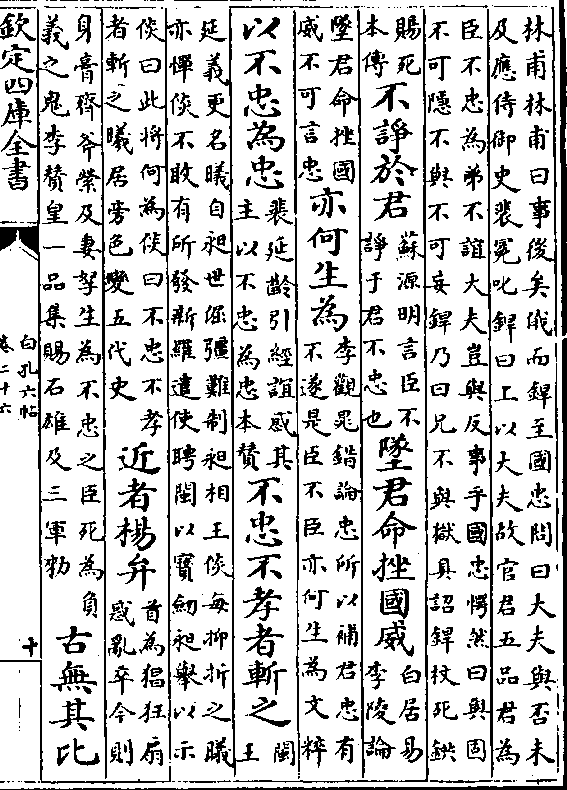 林甫林甫曰事後矣俄而銲至國忠問曰大夫與否未
及應侍御史裴冕叱銲曰上以大夫故官君五品君為
臣不忠為弟不誼大夫豈與反事乎國忠愕然曰與固
不可隱不與不可妄銲乃曰兄不與獄具詔銲杖死鉷
賜死
本傳
不諍於君
蘇源明言臣不
諍于君不忠也
墜君命挫國威
白居易
李陵論
墜君命挫國
威不可言忠
亦何生為
李觀晁錯論忠所以補君忠有
不遂是臣不臣亦何生為文粹
以不忠為忠
裴延齡引經誼惑其
主以不忠為忠本贊
不忠不孝者斬之
閩
王
延義更名曦自昶世倔彊難制昶相王倓每抑折之曦
亦憚倓不敢有所發新羅遣使聘閩以寳劒昶舉以示
倓曰此將何為倓曰不忠不孝
者斬之曦居旁色變五代史
近者楊弁
首為猖狂扇
惑亂卒今則
身膏齊斧縈及妻孥生為不忠之臣死為負
義之鬼李贊皇一品集賜石雄及三軍勅
古無其比
欽定四庫全書
白孔六帖
卷二十六
十